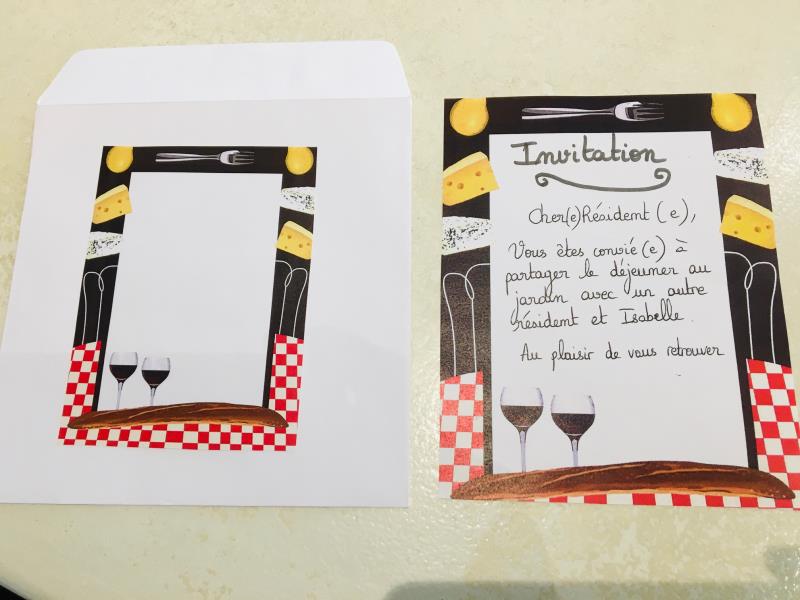 Invitation
Cher(e) Résident(e),
Vous êtes convié(e) à
partager le déjeuner au
jardin avec un autre
résident et Isabelle.
Au plaisir de vous retrouver